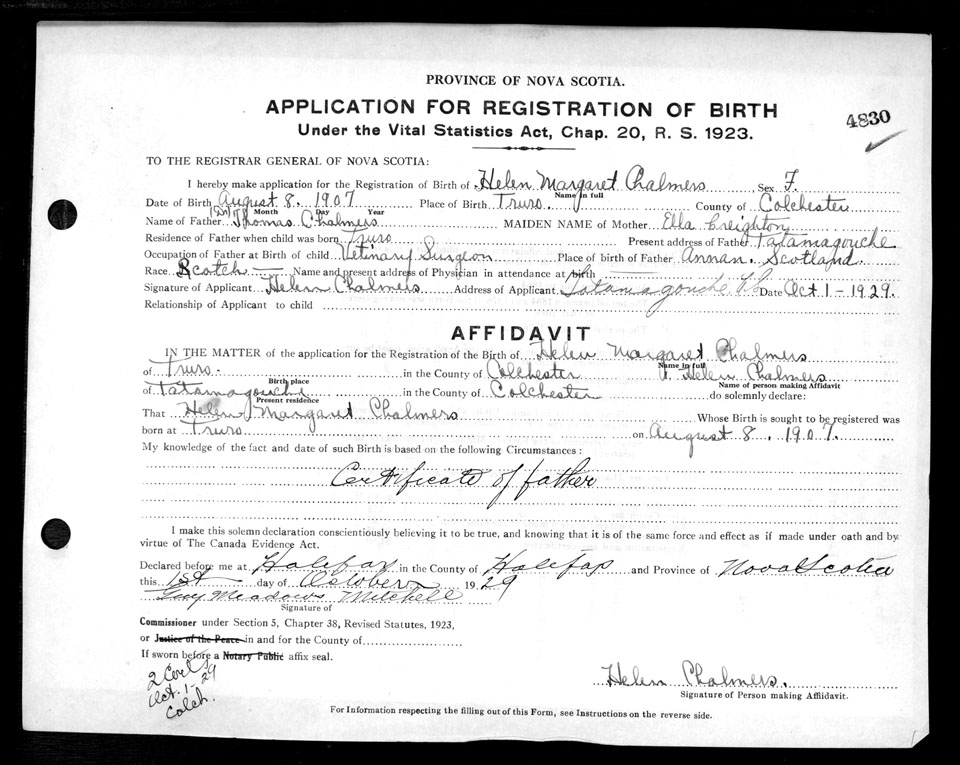 PROVINCE OF NOVA SCOTIA.
APPLICATION FOR REGISTRATION OF BIRTH
4830
Under the Vital Statistics Act, Chap. 20, R. S. 1923.
TO THE REGISTRAR GENERAL OF NOVA SCOTIA:
I hereby make application for the Registration of Birth of Helen Margaret Chalmers Sex F.
Name in full
Date of Birth August 8. 1907 Place of Birth Truro County of Colchester
Month Day Year
Name of Father (Dr) Thomas Chalmers MAIDEN NAME of Mother Ella Creighton
Residence of Father when child was born Truro Present address of Father Tatamagouche
Occupation of Father at Birth of child Vetinary Surgeon Place of birth of Father Annan, Scotland.
Race Scotch Name and present address of Physician in attendance at birth
Signature of Applicant Helen Chalmers Address of Applicant Tatamagouche NS Date Oct 1 - 1929.
Relationship of Applicant to child
AFFIDAVIT
IN THE MATTER of the application for the Registration of the Birth of Helen Margaret Chalmers
Name in full
of Truro. in the County of Colchester I, Helen Chalmers
Birth place Name of person making Affidavit
of Tatamagouche in the County of Colchester do solemnly declare:
Present residence
That Helen Margaret Chalmers Whose Birth is sought to be registered was
born at Truro on August 8, 1907.
My knowledge of the fact and date of such Birth is based on the following Circumstances:
Certificate of father
I make this solemn declaration conscientiously believing it to be true, and knowing that it is of the same force and effect as if made under oath and by
virtue of The Canada Evidence Act.
Declared before me at Halifax in the County of Halifax and Province of Nova Scotia
this 1st day of October 1929
Guy Meadows Mitchell
Signature of
Commissioner under Section 5, Chapter 38, Revised Statutes, 1923,
or Justice of the Peace in and for the County of
If sworn before a Notary Public affix seal.
2 Certs
Oct. 1-29
Colch.
Helen Chalmers.
Signature of Person making Affidavit.
For Information respecting the filling out of this Form, see Instructions on the reverse side.